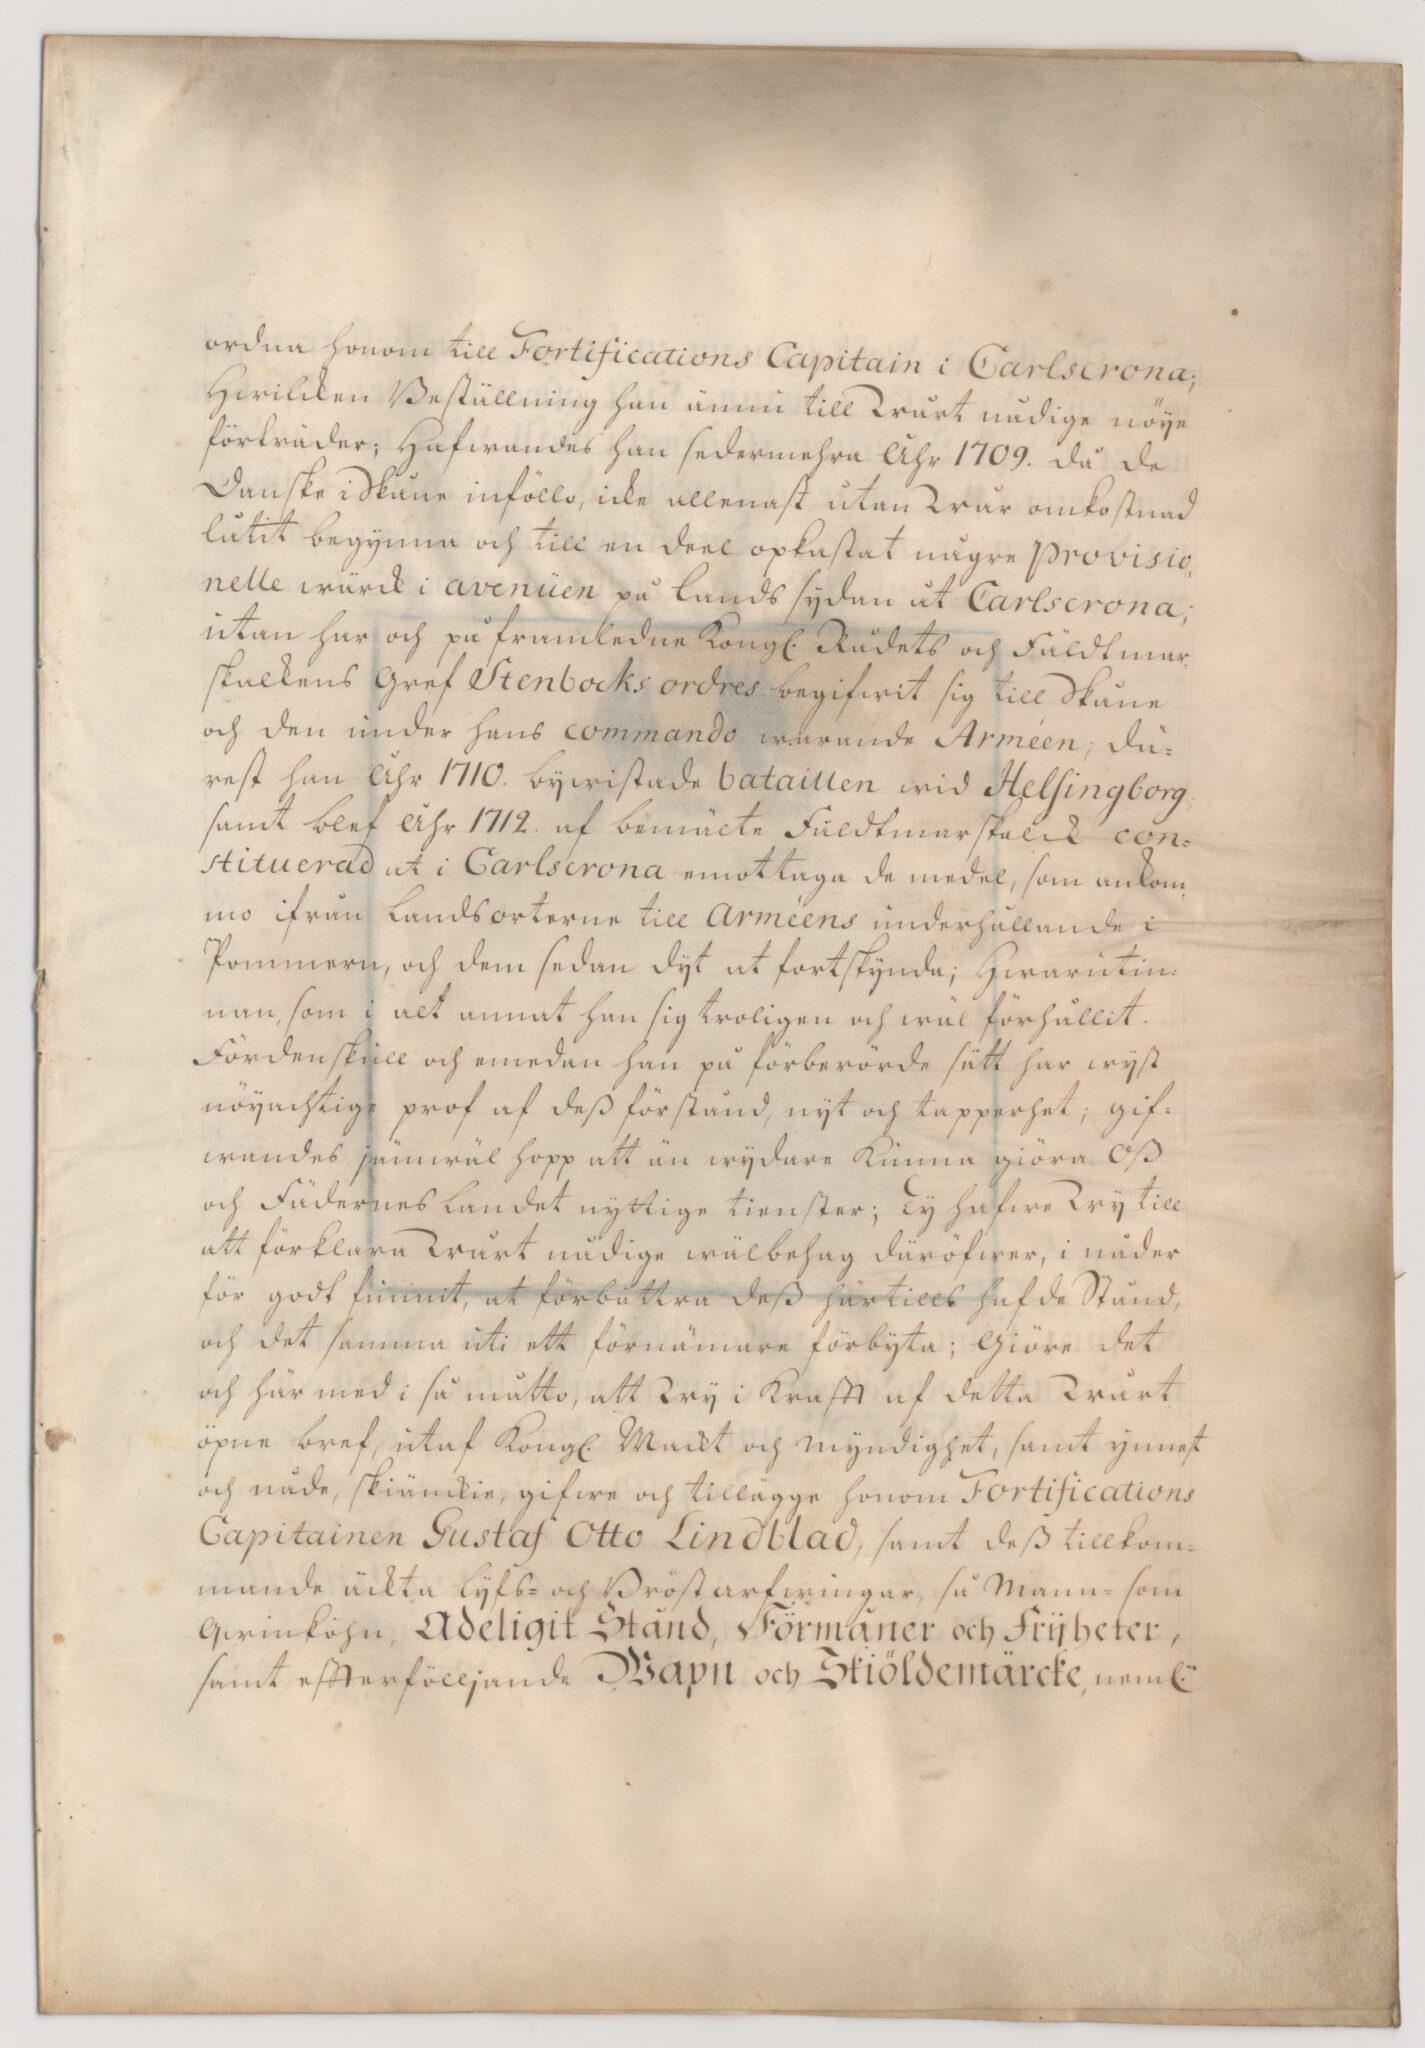 ordna honom till Fortifications Capitain i Carlscrona;
Hwilcken Beställning han ännu till Wårt nådige nöye
förträder; Hafwandes han sedermehra Åhr 1709. då de
Danske i Skåne inföllo, icke allenast utan Wår omkostnad
låtit begynna och till en deel opkastat någre Provisio-
nelle wärck i avenüen på Lands sydan åt Carlscrona;
utan har och på framledne Kongl. Rådets och Fäldtmar-
skalckens Gref Stenbocks ordres begifwit sig till Skåne
och den under hans commando warande Arméen; dä-
rest han Åhr 1710. bywistade bataillen wid Helsingborg;
samt blef Åhr 1712. af bemälte Fäldtmarskalck con-
stituerad at i Carlscrona emottaga de medel, som ankom-
mo ifrån Landsorterne till Arméens underhållande i
Pommern, och dem sedan dyt at fortskynda; Hwarutin-
nan, som i alt annat han sig troligen och wäl förhållit.
Fördenskull och emedan han på förberörde sätt har wyst
nöyachtige prof af deß förstånd, nyt och tapperhet; gif-
wandes jämwäl hopp att än wydare kunna giöra Oß
och Fäderneslandet nyttige tienster; Ty hafwe Wy till
att förklara Wårt nådige wälbehag däröfwer, i nåder
för godt funnit, at förbättra deß härtills hafde Stånd,
och det samma uti ett förnämare förbyta; Giöre det
och här med i så måtto, att Wy i Krafft af detta Wårt
öpne bref, utaf Kongl. Mackt och myndighet, samt ynnest
och nåde, skiänckie, gifwe och tillägge honom Fortifications
Capitainen Gustaf Otto Lindblad, samt deß tillkom-
mande äckta Lyfs- och Bröstarfwingar, så Mann- som
Qwinköhn, Adeligit Stånd, Förmåner och Frijheter,
samt effterfölljande Wapn och Skiöldemärcke, neml.